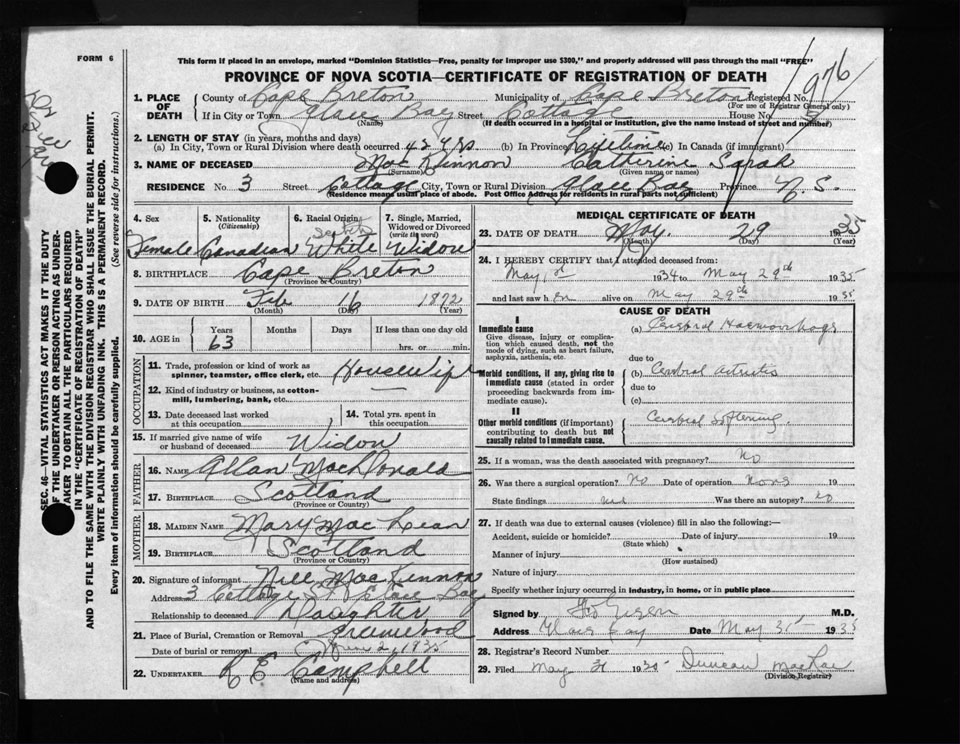 FORM 6
This form if placed in an envelope, marked "Dominion Statistics—Free, penalty for improper use $300," and properly addressed will pass through the mail "FREE"
PROVINCE OF NOVA SCOTIA—CERTIFICATE OF REGISTRATION OF DEATH
976
1. PLACE OF DEATH
County of Cape Breton Municipality of Cape Breton Registered No.
(For use of Registrar General only)
If in City or Town Glace Bay Street Cottage House No. 3
(Name) (If death occurred in a hospital or institution, give the name instead of street and number)
2. LENGTH OF STAY (in years, months and days)
(a) In City, Town or Rural Division where death occurred 42 yrs. (b) In Province Lifetime (c) In Canada (if immigrant)
3. NAME OF DECEASED MacKinnon Catherine Sarah
(Surname) (Given name or names)
RESIDENCE No. 3 Street Cottage City, Town or Rural Division Glace Bay Province N.S.
(Residence means usual place of abode. Post Office Address for residents in rural parts not sufficient)
4. Sex 5. Nationality 6. Racial Origin 7. Single, Married, Widowed or Divorced
(Citizenship) (write the word)
Female Canadian White Widow
8. BIRTHPLACE Cape Breton
(Province or Country)
9. DATE OF BIRTH Feb 16 1872
(Month) (Day) (Year)
10. AGE in Years Months Days If less than one day old
63 hrs. or min.
OCCUPATION
11. Trade, profession or kind of work as spinner, teamster, office clerk, etc. Housewife
12. Kind of industry or business, as cotton-mill, lumbering, bank, etc. —
13. Date deceased last worked at this occupation
14. Total yrs. spent in this occupation
15. If married give name of wife or husband of deceased Widow
FATHER
16. NAME Allan MacDonald
17. BIRTHPLACE Scotland
(Province or Country)
MOTHER
18. MAIDEN NAME Mary MacLean
19. BIRTHPLACE Scotland
(Province or Country)
20. Signature of informant Nell MacKinnon
Address 3 Cottage St Glace Bay
Relationship to deceased Daughter
21. Place of Burial, Cremation or Removal Greenwood
Date of burial or removal June 2, 1935
22. UNDERTAKER R E Campbell
(Name and address)
MEDICAL CERTIFICATE OF DEATH
23. DATE OF DEATH May 29 1935
(Month) (Day) (Year)
24. I HEREBY CERTIFY that I attended deceased from:
May 1934 to May 29th 1935
and last saw h er alive on May 29th 1935
CAUSE OF DEATH
I
Immediate cause (a) Cerebral Haemorrhage
Give disease, injury or complication which caused death, not the mode of dying, such as heart failure, asphyxia, asthenia, etc.
due to
Morbid conditions, if any, giving rise to immediate cause (stated in order proceeding backwards from immediate cause).
(b) Cerebral Arteritis
due to
(c)
II
Other morbid conditions (if important) contributing to death but not causally related to immediate cause.
Cerebral Softening
25. If a woman, was the death associated with pregnancy? No
26. Was there a surgical operation? No Date of operation None 19
State findings Was there an autopsy? No
27. If death was due to external causes (violence) fill in also the following:—
Accident, suicide or homicide? Date of injury 19
(State which)
Manner of injury
(How sustained)
Nature of injury
Specify whether injury occurred in industry, in home, or in public place
Signed by M.D.
Address Glace Bay Date May 31 1935
28. Registrar's Record Number
29. Filed May 31 1935 Duncan MacRae
(Division Registrar)
SEC. 46—VITAL STATISTICS ACT MAKES IT THE DUTY
OF THE UNDERTAKER OR PERSON ACTING AS UNDER-
TAKER TO OBTAIN ALL THE PARTICULARS REQUIRED
IN THE "CERTIFICATE OF REGISTRATION OF DEATH"
AND TO FILE THE SAME WITH THE DIVISION REGISTRAR WHO SHALL ISSUE THE BURIAL PERMIT.
WRITE PLAINLY WITH UNFADING INK. THIS IS A PERMANENT RECORD.
Every item of information should be carefully supplied. (See reverse side for instructions.)